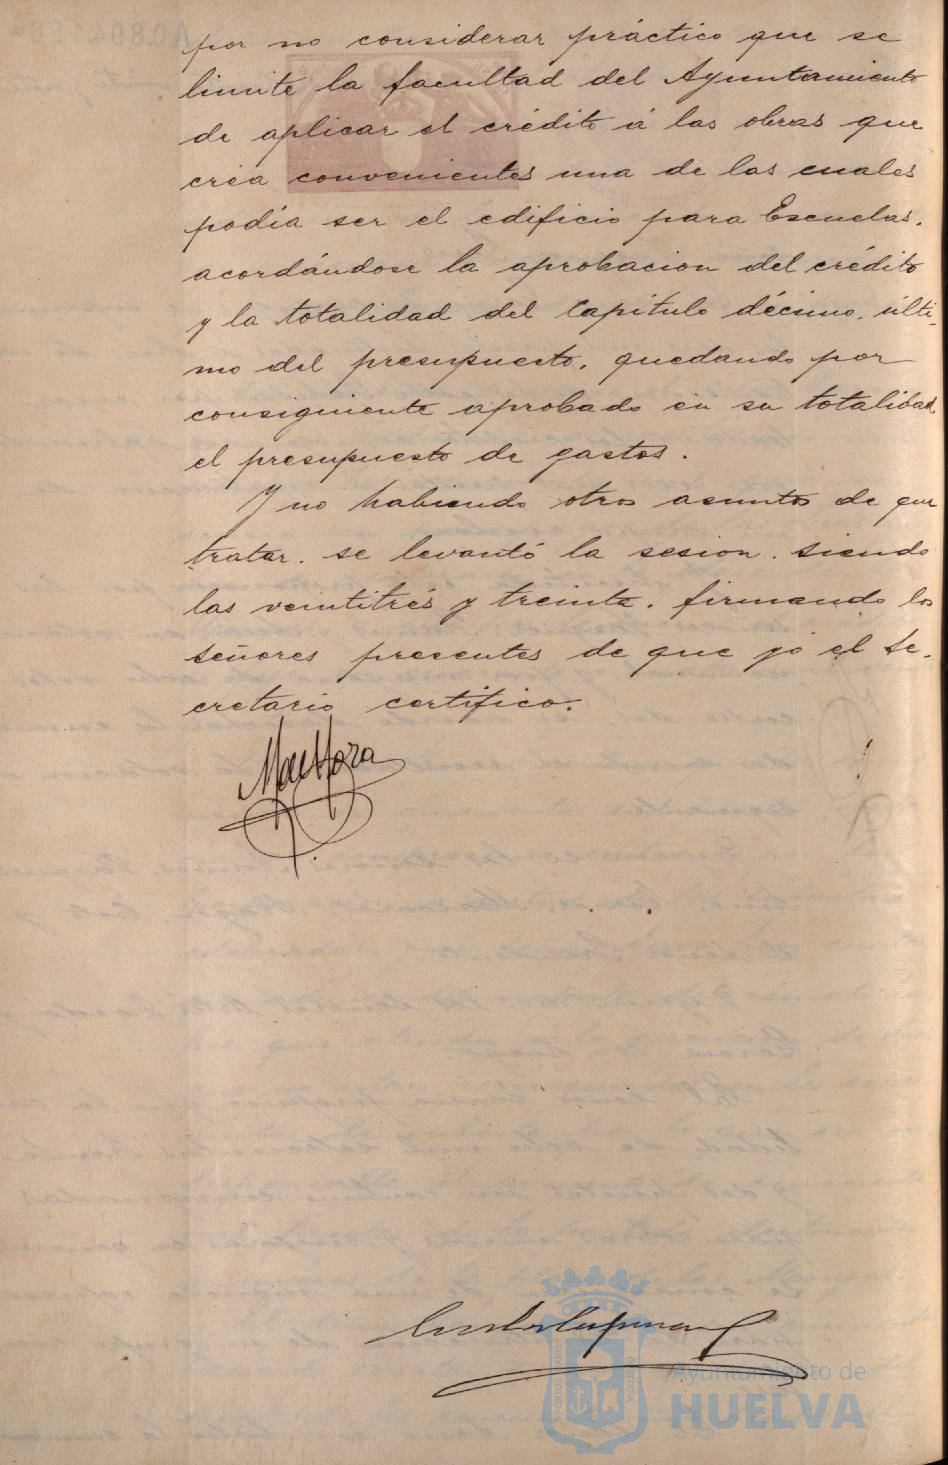 por no considerar práctico que se
limite la facultad del Ayuntamiento
de aplicar el crédito á las obras que
crea convenientes una de las cuales
podía ser el edificio para Escuelas.
acordándose la aprobacion del crédito
y la totalidad del Capítulo décimo, últi-
mo del presupuesto, quedando por
consiguiente aprobado en su totalidad
el presupuesto de gastos.
Y no habiendo otros asuntos de que
tratar. se levantó la sesion. siendo
las veintitrés y treinta. firmando los
señores presentes de que yo el Se-
cretario certifico.
Ayuntamiento de
HUELVA